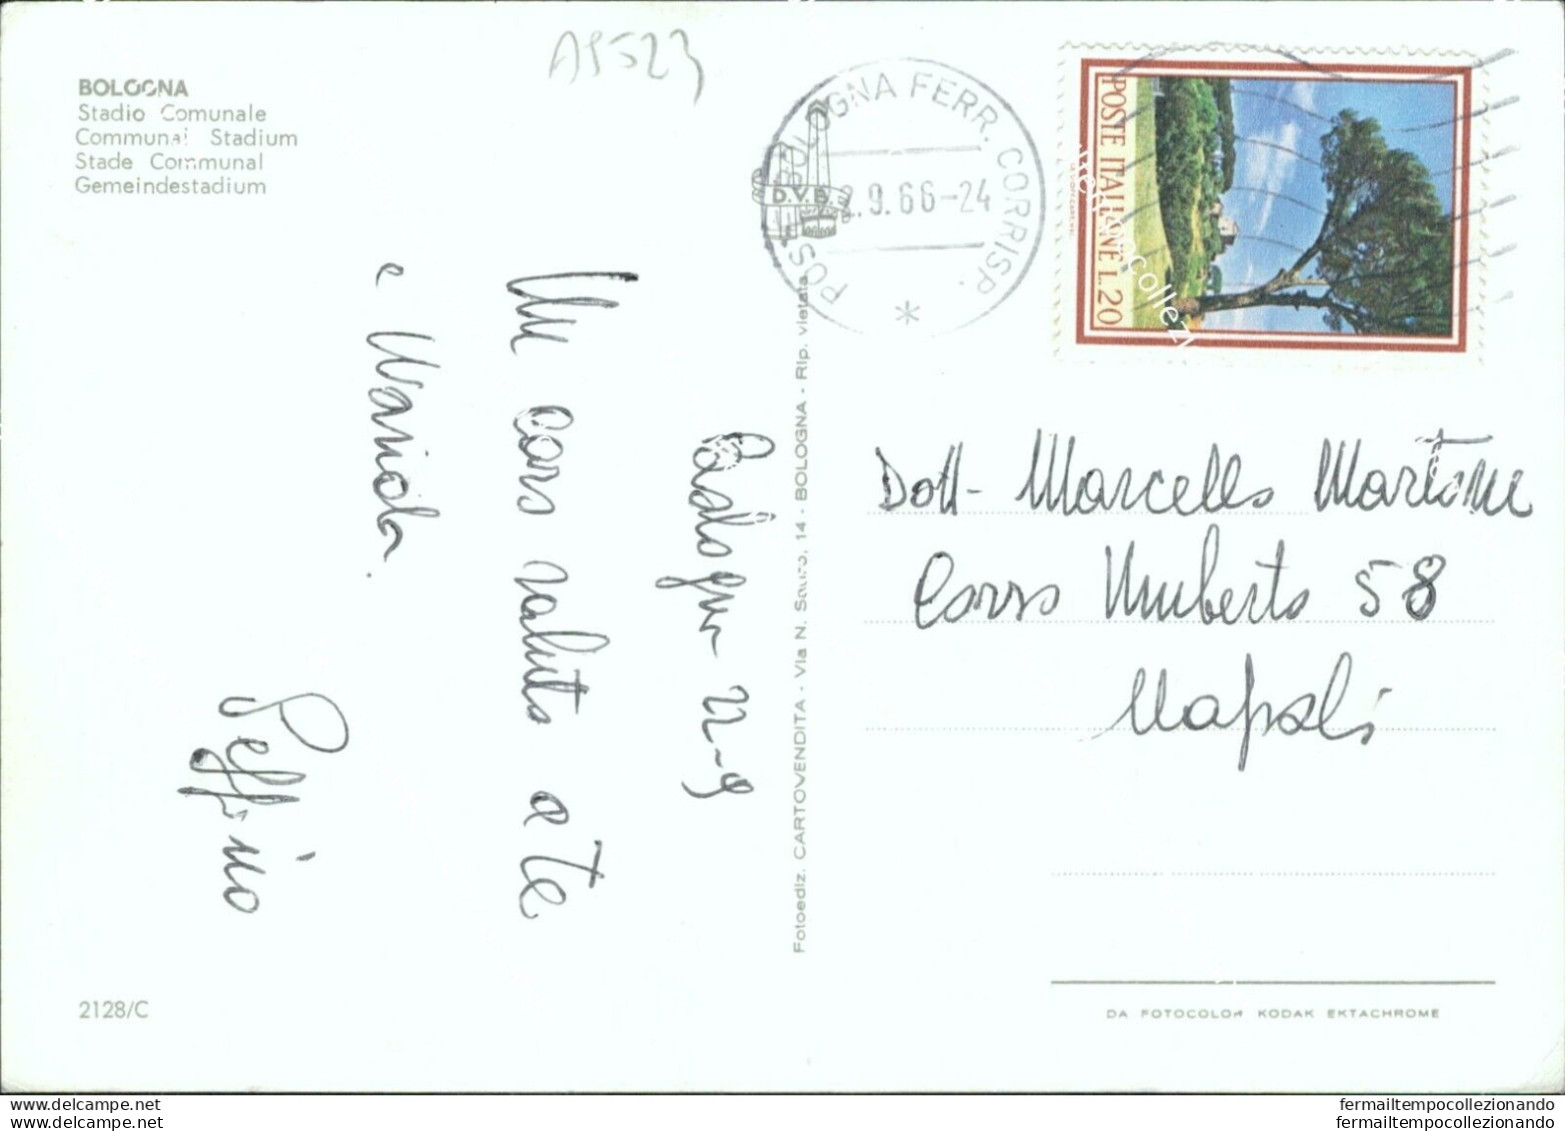 BOLOGNA
Stadio Comunale
Communal Stadium
Stade Communal
Gemeindestadium
AP523
POSTE BOLOGNA FERR. CORRISP.
2.9.66-24
D.V.B.
POSTE ITALIANE L.20
Bologna 22-9
Un caro saluto a te
e Mariola.
Peppino
Fotoediz. CARTOVENDITA - Via N. Sauro, 14 - BOLOGNA - Rip. vietata
Dott. Marcello Martone
Corso Umberto 58
Napoli
2128/C
DA FOTOCOLOR KODAK EKTACHROME
www.delcampe.net
fermailtempocollezionando
www.delcampe.net
fermailtempocollezionando